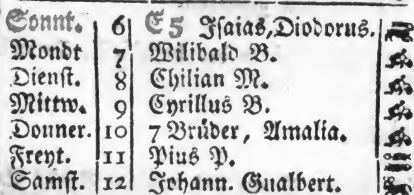 Sonnt. 6 E 5 Jſaias, Diodorus.
Mondt 7 Wilibald B.
Dienſt. 8 Chilian M.
Mittw. 9 Cyrillus B.
Donner. 10 7 Brüder, Amalia.
Freyt. 11 Pius P.
Samſt. 12 Johann. Gualbert.